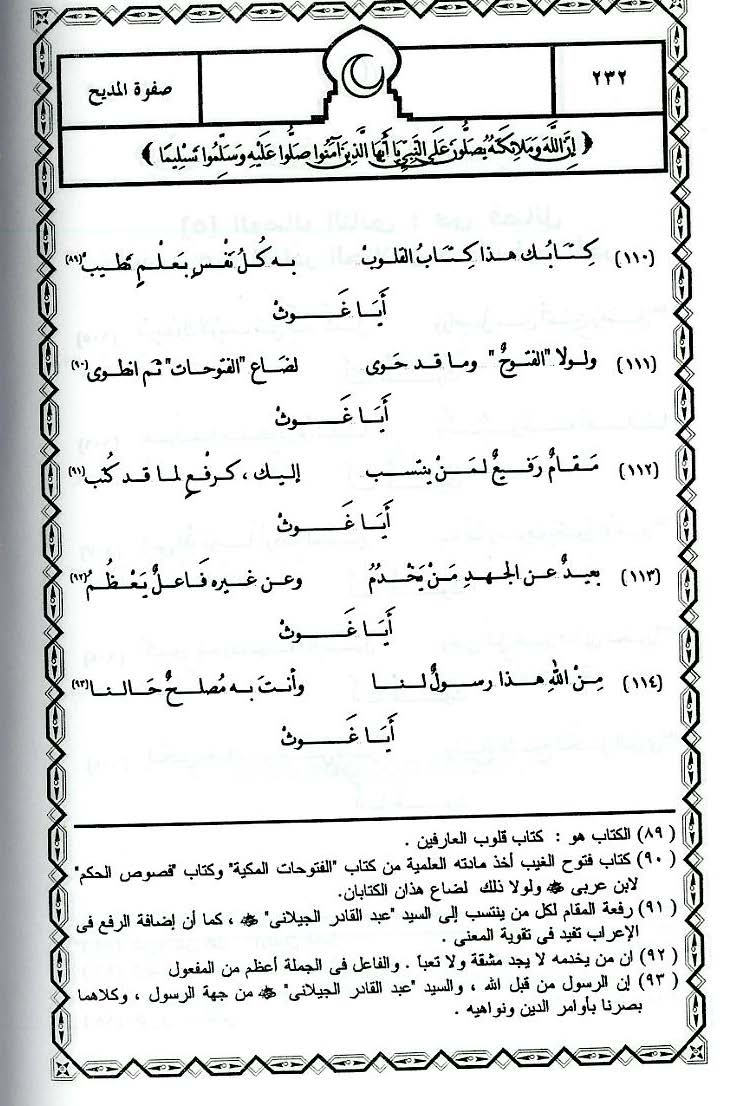 ٢٣٢
صفوة المديح
﴿ إِنَّ اللَّهَ وَمَلَائِكَتَهُ يُصَلُّونَ عَلَى النَّبِيِّ يَا أَيُّهَا الَّذِينَ آمَنُوا صَلُّوا عَلَيْهِ وَسَلِّمُوا تَسْلِيمًا ﴾
(١١٠) كِتَابُك هذا كِتَابُ القلوبْ به كُلُ نفْسٍ بَعَلْمٍ تطيبْ (٨٩)
أَيَا غَوثْ
(١١١) ولولا "الفتوحُ" وما قد حَوى لضَاع "الفتوحات" ثم انطوى (٩٠)
أَيَا غَوثْ
(١١٢) مَقامٌ رَفيعٌ لمَنْ ينتسب إليك ، كرفْعٍ لما قد كُتب (٩١)
أَيَا غَوثْ
(١١٣) بعيدٌ عن الجهدِ مَنْ يَخْدُمُ وعن غيره فَاعلٌ يَعْظُمُ (٩٢)
أَيَا غَوثْ
(١١٤) مِنْ اللهِ هذا رسولٌ لنا وأنتَ به مُصلحٌ حَالنا (٩٣)
أَيَا غَوثْ
( ٨٩ ) الكتاب هو : كتاب قلوب العارفين .
( ٩٠ ) كتاب فتوح الغيب أخذ مادته العلمية من كتاب "الفتوحات المكية" وكتاب "فصوص الحكم"
لابن عربى ولولا ذلك لضاع هذان الكتابان.
( ٩١ ) رفعة المقام لكل من ينتسب إلى السيد "عبد القادر الجيلانى" ، كما أن إضافة الرفع فى
الإعراب تفيد فى تقوية المعنى .
( ٩٢ ) ان من يخدمه لا يجد مشقة ولا تعباً . والفاعل فى الجملة أعظم من المفعول
( ٩٣ ) إن الرسول من قبل الله ، والسيد "عبد القادر الجيلانى" من جهة الرسول ، وكلاهما
بصرنا بأوامر الدين ونواهيه .